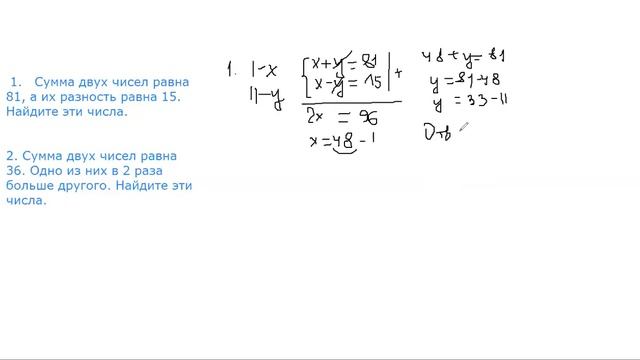 1. Сумма двух чисел равна
81, а их разность равна 15.
Найдите эти числа.
2. Сумма двух чисел равна
36. Одно из них в 2 раза
больше другого. Найдите эти
числа.
1. I-x
II-y
x+y=81
x-y=15 +
2x = 96
x=48-I
48+y=81
y=81-48
y =33-II
Отв